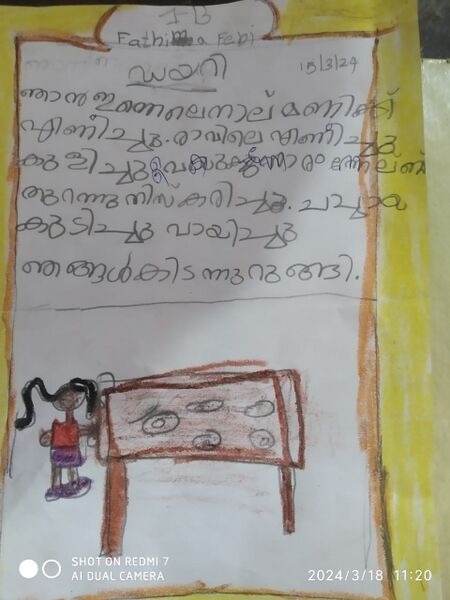 1-B
Fathima Febi
ഡയറി
15/3/24
ഞാൻ ഇന്നലെ നാല് മണിക്ക്
എണീച്ചു. രാവിലെ എണീച്ചു
കുളിച്ചു വൈകുന്നേരം
തുറന്നു നിസ്കരിച്ചു. ചപ്പായ
കുടിച്ചു വായിച്ചു
ഞങ്ങൾ കിടന്നുറങ്ങി.
SHOT ON REDMI 7
AI DUAL CAMERA
2024/3/18 11:20